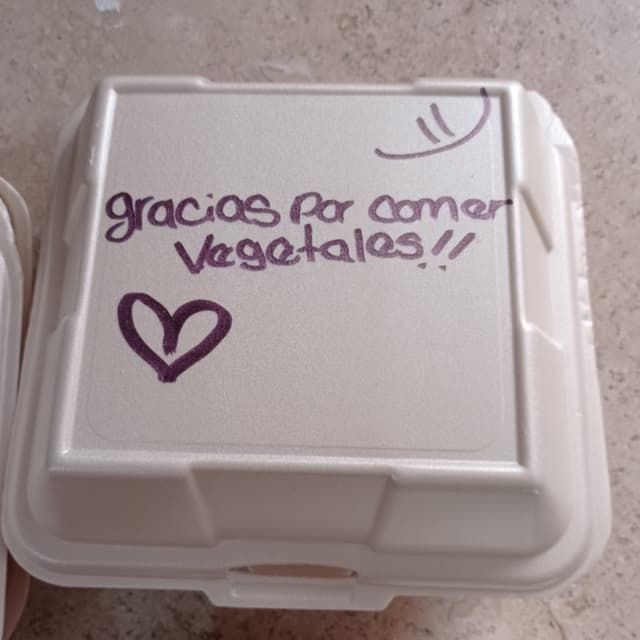 gracias por comer
vegetales!!